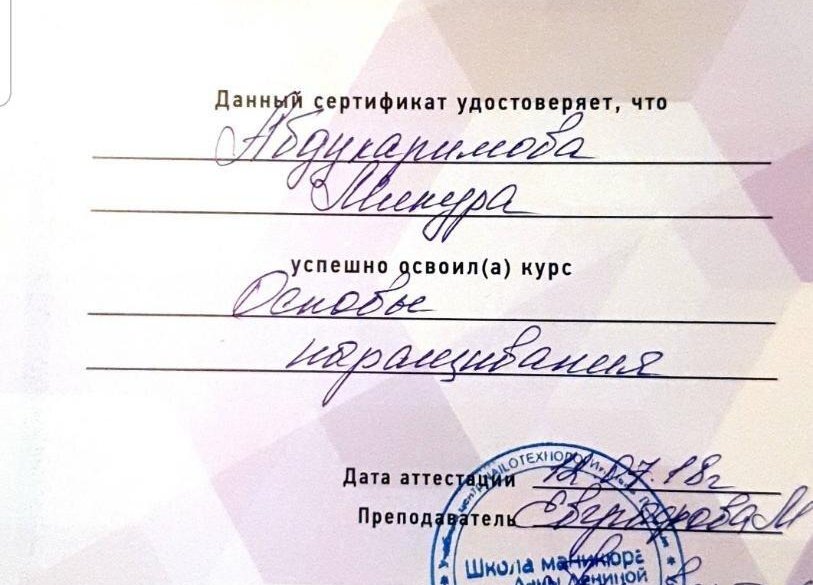 Данный сертификат удостоверяет, что
Абдукаримова
Минура
успешно освоил(а) курс
Основы
наращивания
Дата аттестации 12.07.18г
Преподаватель
Школа маникюра
Лениной